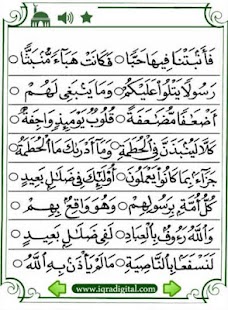 فَأَنۢبَتْنَا فِيهَا حَبًّا ○ فَكَانَتْ هَبَآءً مُّنۢبَثًّا
رَسُولًا يَتْلُوا۟ عَلَيْكُمْ ○ وَمَا يَنۢبَغِى لَهُمْ
أَضْعَٰفًا مُّضَٰعَفَةً ○ قُلُوبٌ يَوْمَئِذٍ وَاجِفَةٌ ○
كَلَّا لَيُنۢبَذَنَّ فِى ٱلْحُطَمَةِ ○ وَمَآ أَدْرَىٰكَ مَا ٱلْحُطَمَةُ
جَزَآءًۢ بِمَا كَانُوا۟ يَعْمَلُونَ ○ أُو۟لَٰٓئِكَ فِى ضَلَٰلٍۭ بَعِيدٍ
كُلُّ أُمَّةٍۭ بِرَسُولِهِمْ ○ وَهُوَ وَاقِعٌۢ بِهِمْ
وَٱللَّهُ رَءُوفٌۢ بِٱلْعِبَادِ ○ لَفِى ضَلَٰلٍۭ بَعِيدٍ
لَنَسْفَعًۢا بِٱلنَّاصِيَةِ ○ مَا لَمْ يَأْذَنۢ بِهِ ٱللَّهُ
www.iqradigital.com